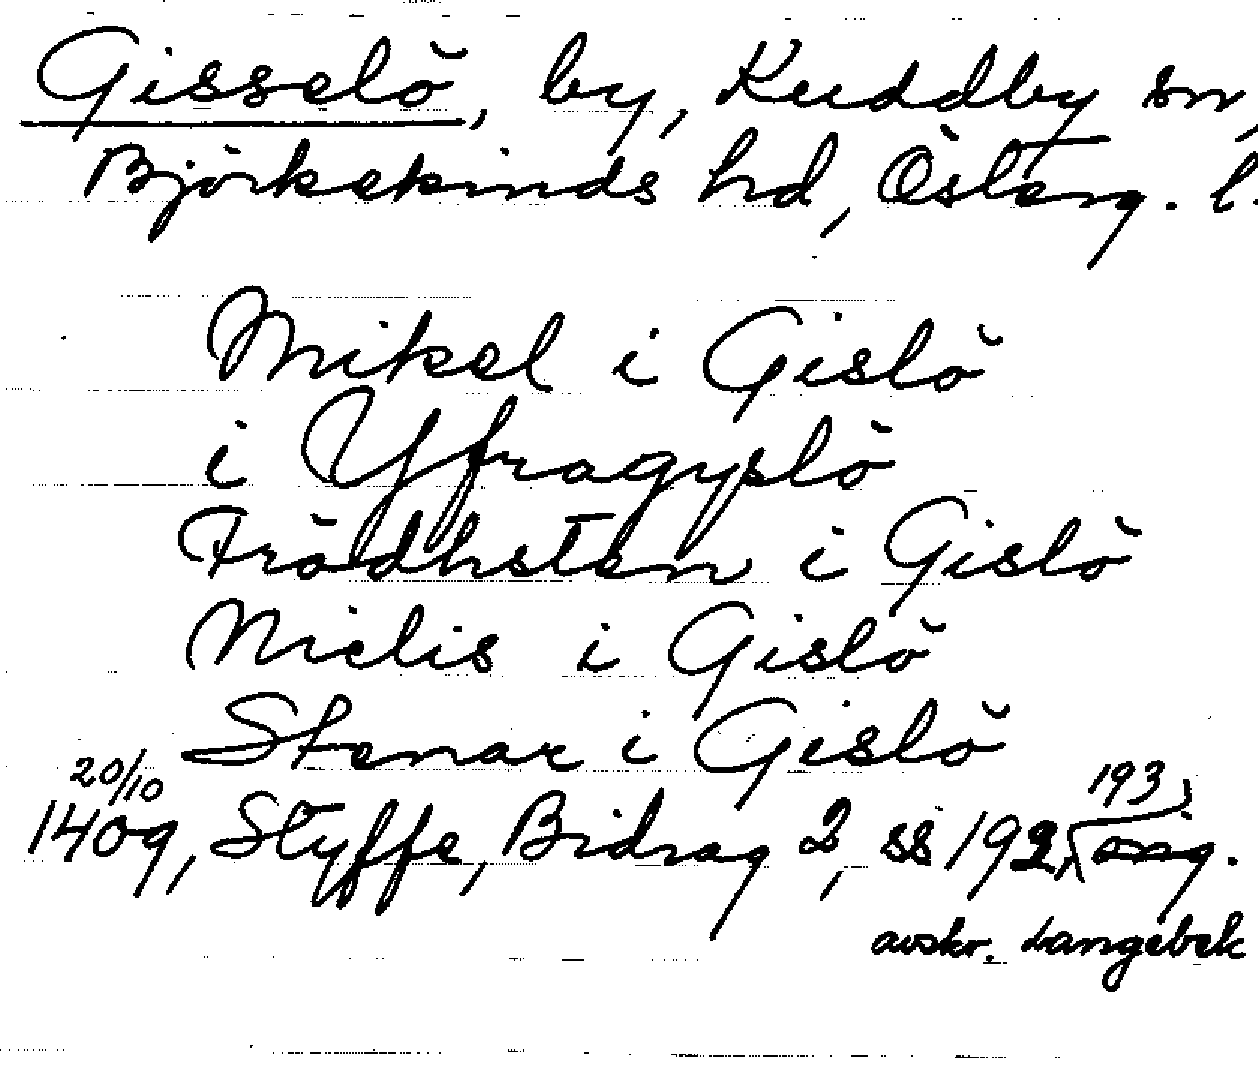 Gisselö, by, Kuddby sn,
Björkekinds hd, Österg. l.
Mikel i Gislö
i Yfragyslö
Frödhsten i Gislö
Niclis i Gislö
Stenar i Gislö
20/10 193
1409, Styffe, Bidrag 2, ss 192, orig.
avskr. Langebek